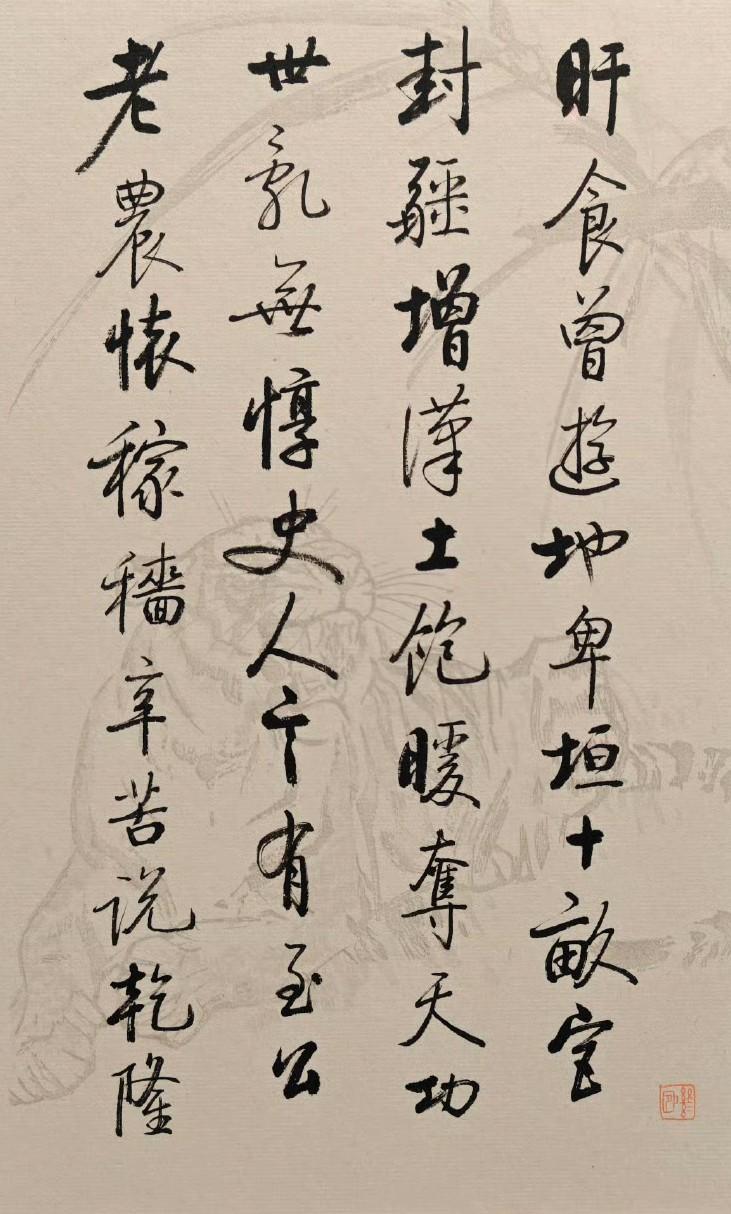 旰食曾遊地卑垣十畝宮
封疆增漢土飽暖奪天功
世亂無惇史人言有至公
老農懷稼穡辛苦説乾隆